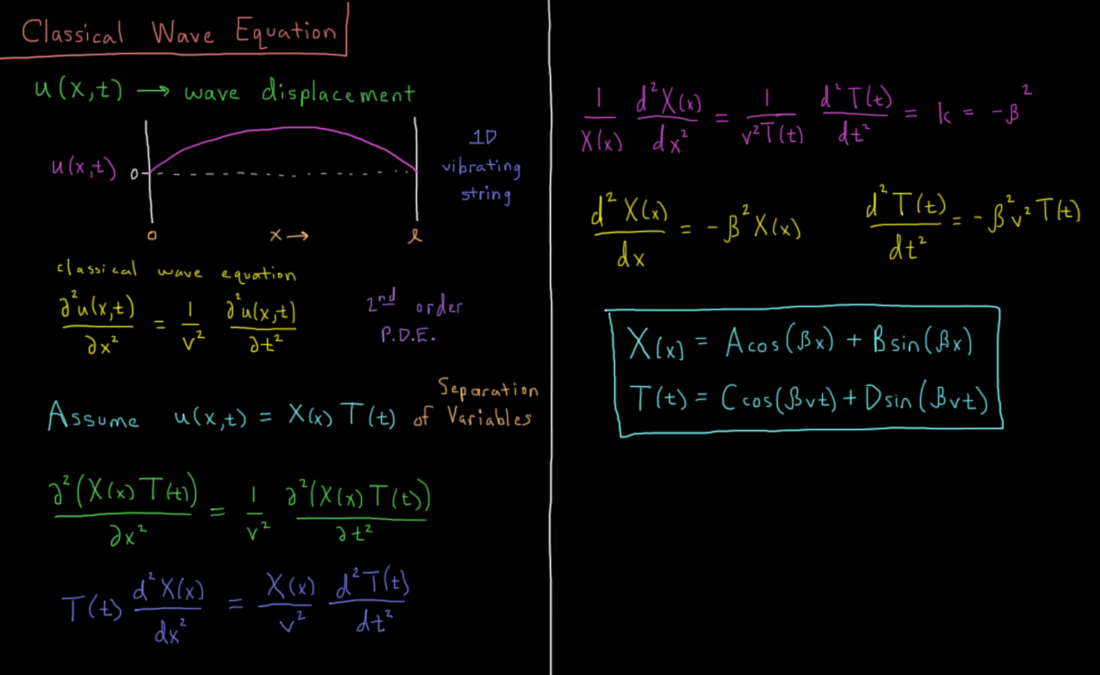 Classical Wave Equation
u(x,t) → wave displacement
u(x,t) 0
1D
vibrating
string
0 x → l
classical wave equation
∂²u(x,t)/∂x² = 1/v² ∂²u(x,t)/∂t²
2nd order
P.D.E.
Assume u(x,t) = X(x) T(t)
Separation
of Variables
∂²(X(x) T(t))/∂x² = 1/v² ∂²(X(x) T(t))/∂t²
T(t) d²X(x)/dx² = X(x)/v² d²T(t)/dt²
1/X(x) d²X(x)/dx² = 1/v²T(t) d²T(t)/dt² = k = -β²
d²X(x)/dx = -β²X(x)
d²T(t)/dt² = -β²v²T(t)
X(x) = Acos(βx) + Bsin(βx)
T(t) = Ccos(βvt) + Dsin(βvt)